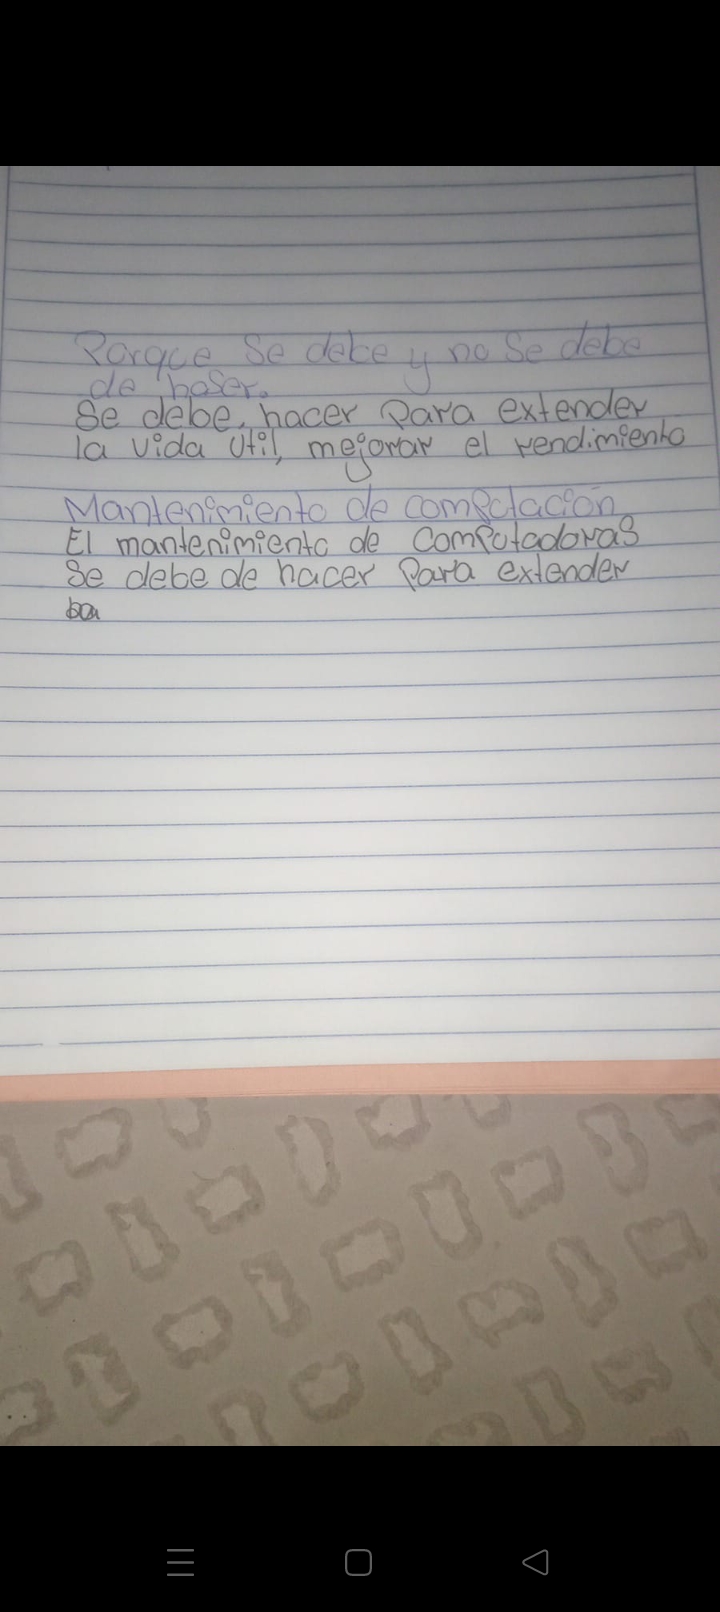 Porque se debe y no se debe
de haser.
Se debe, hacer para extender
la vida util, mejorar el rendimiento
Mantenimiento de computacion
El mantenimiento de computadoras
Se debe de hacer para extender